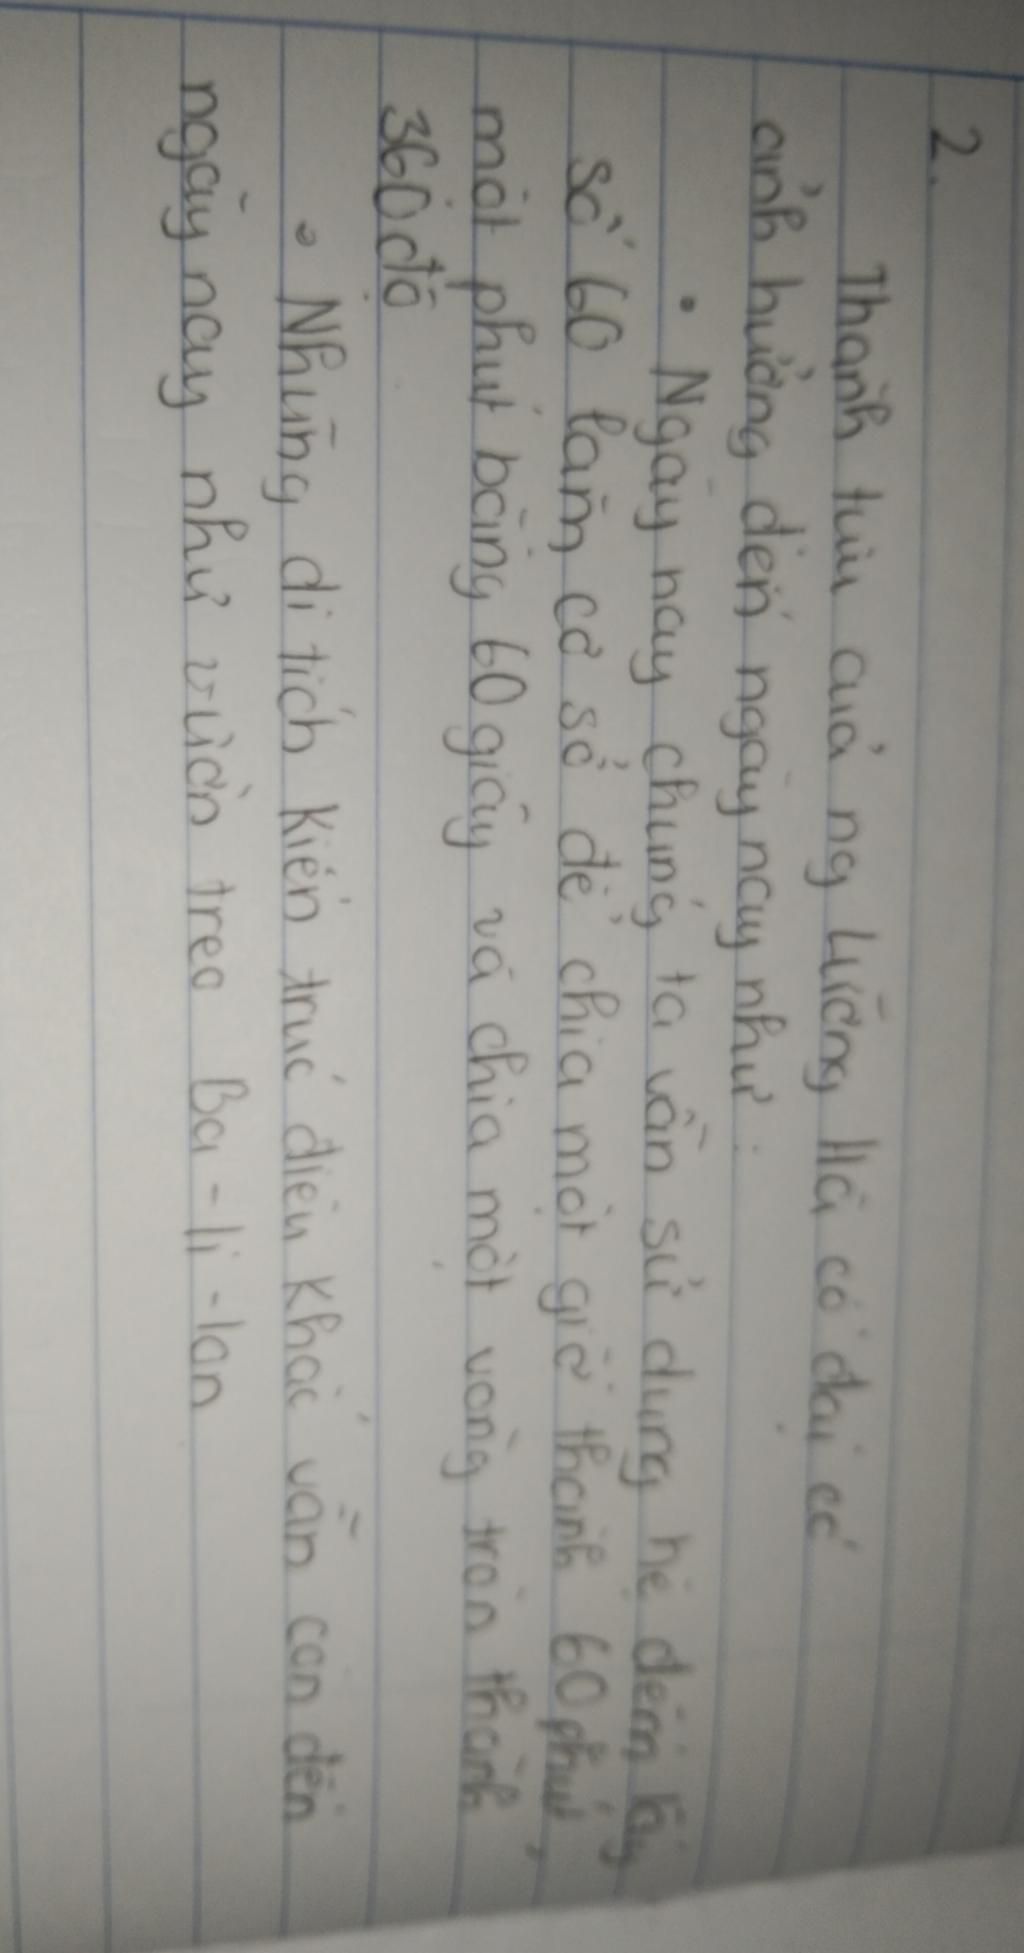 2.
Thành tựu của ng Lưỡng Hà cổ đại có
ảnh hưởng đến ngày nay như :
• Ngày nay chúng ta vẫn sử dụng hệ đếm lấy
số 60 làm cơ sở để chia một giờ thành 60 phút,
một phút bằng 60 giây và chia một vòng tròn thành
360 độ
• Những di tích kiến trúc điêu khắc vẫn còn đến
ngày nay như vườn treo Ba-li-lan